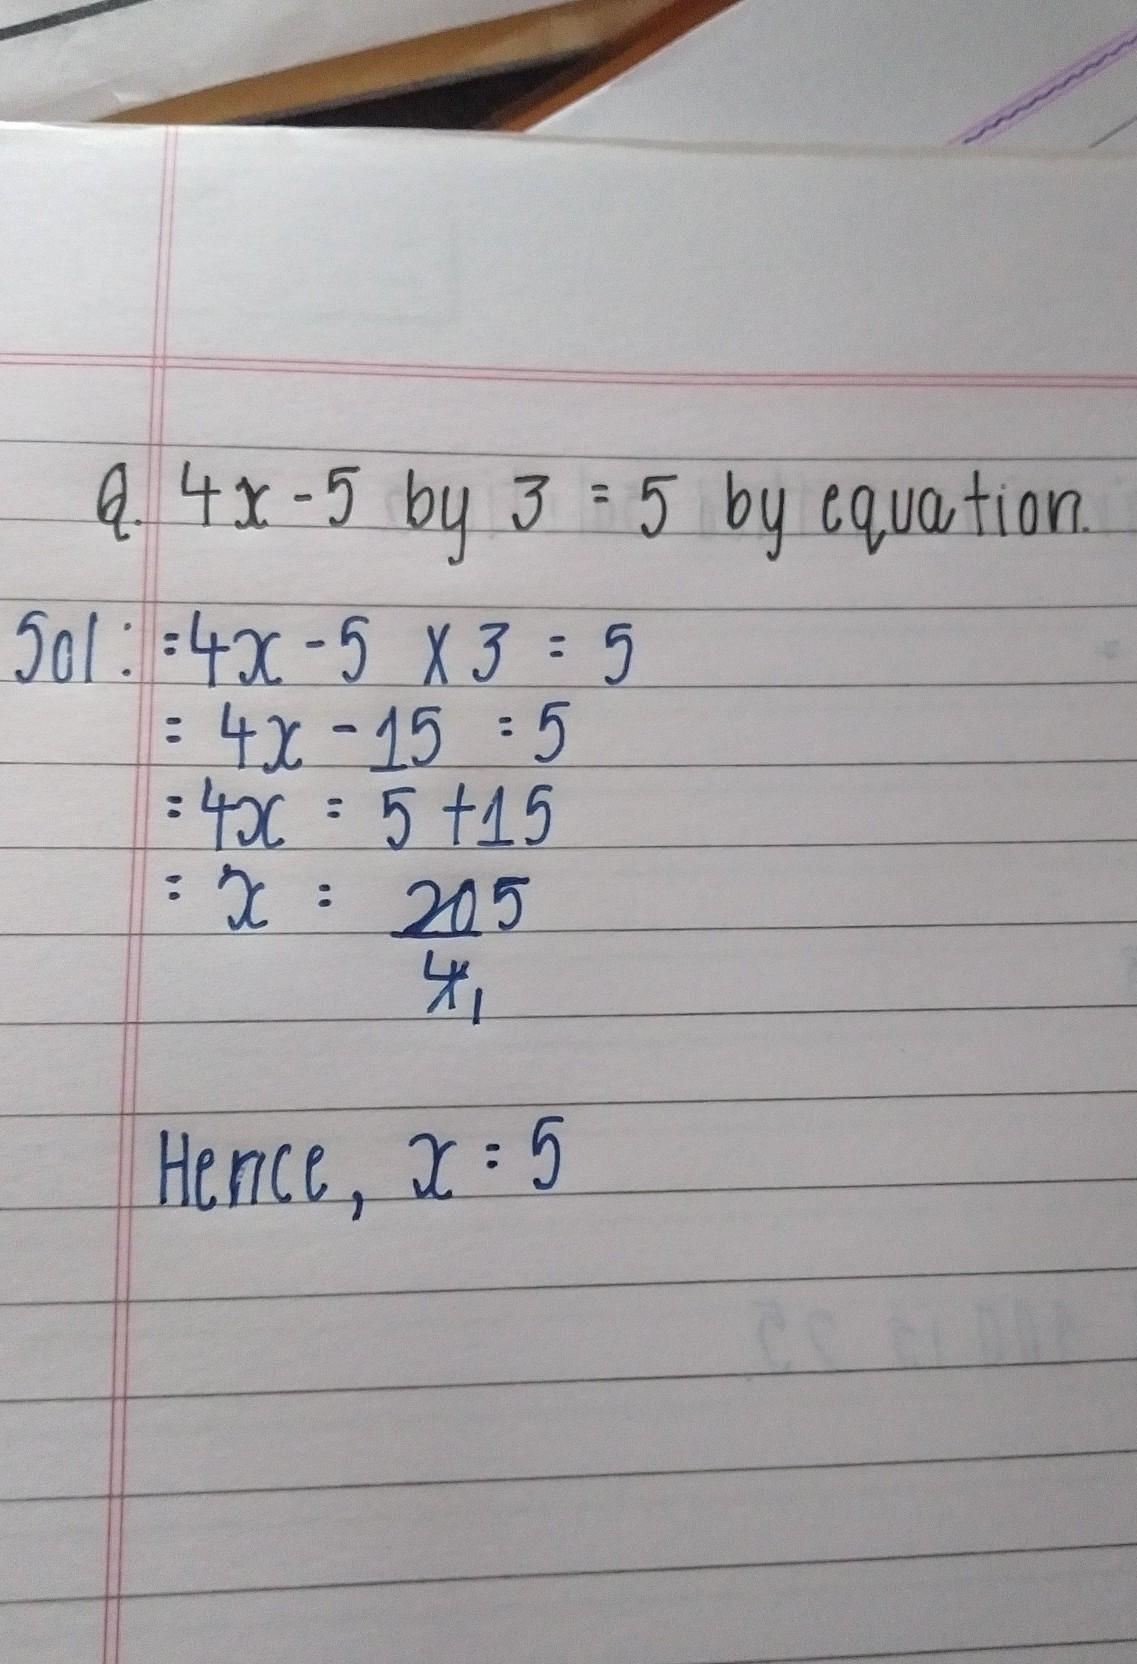 Q. 4x - 5 by 3 = 5 by equation.
Sol: = 4x - 5 x 3 = 5
= 4x - 15 = 5
= 4x = 5 + 15
= x = 20 5
4 1
Hence, x = 5